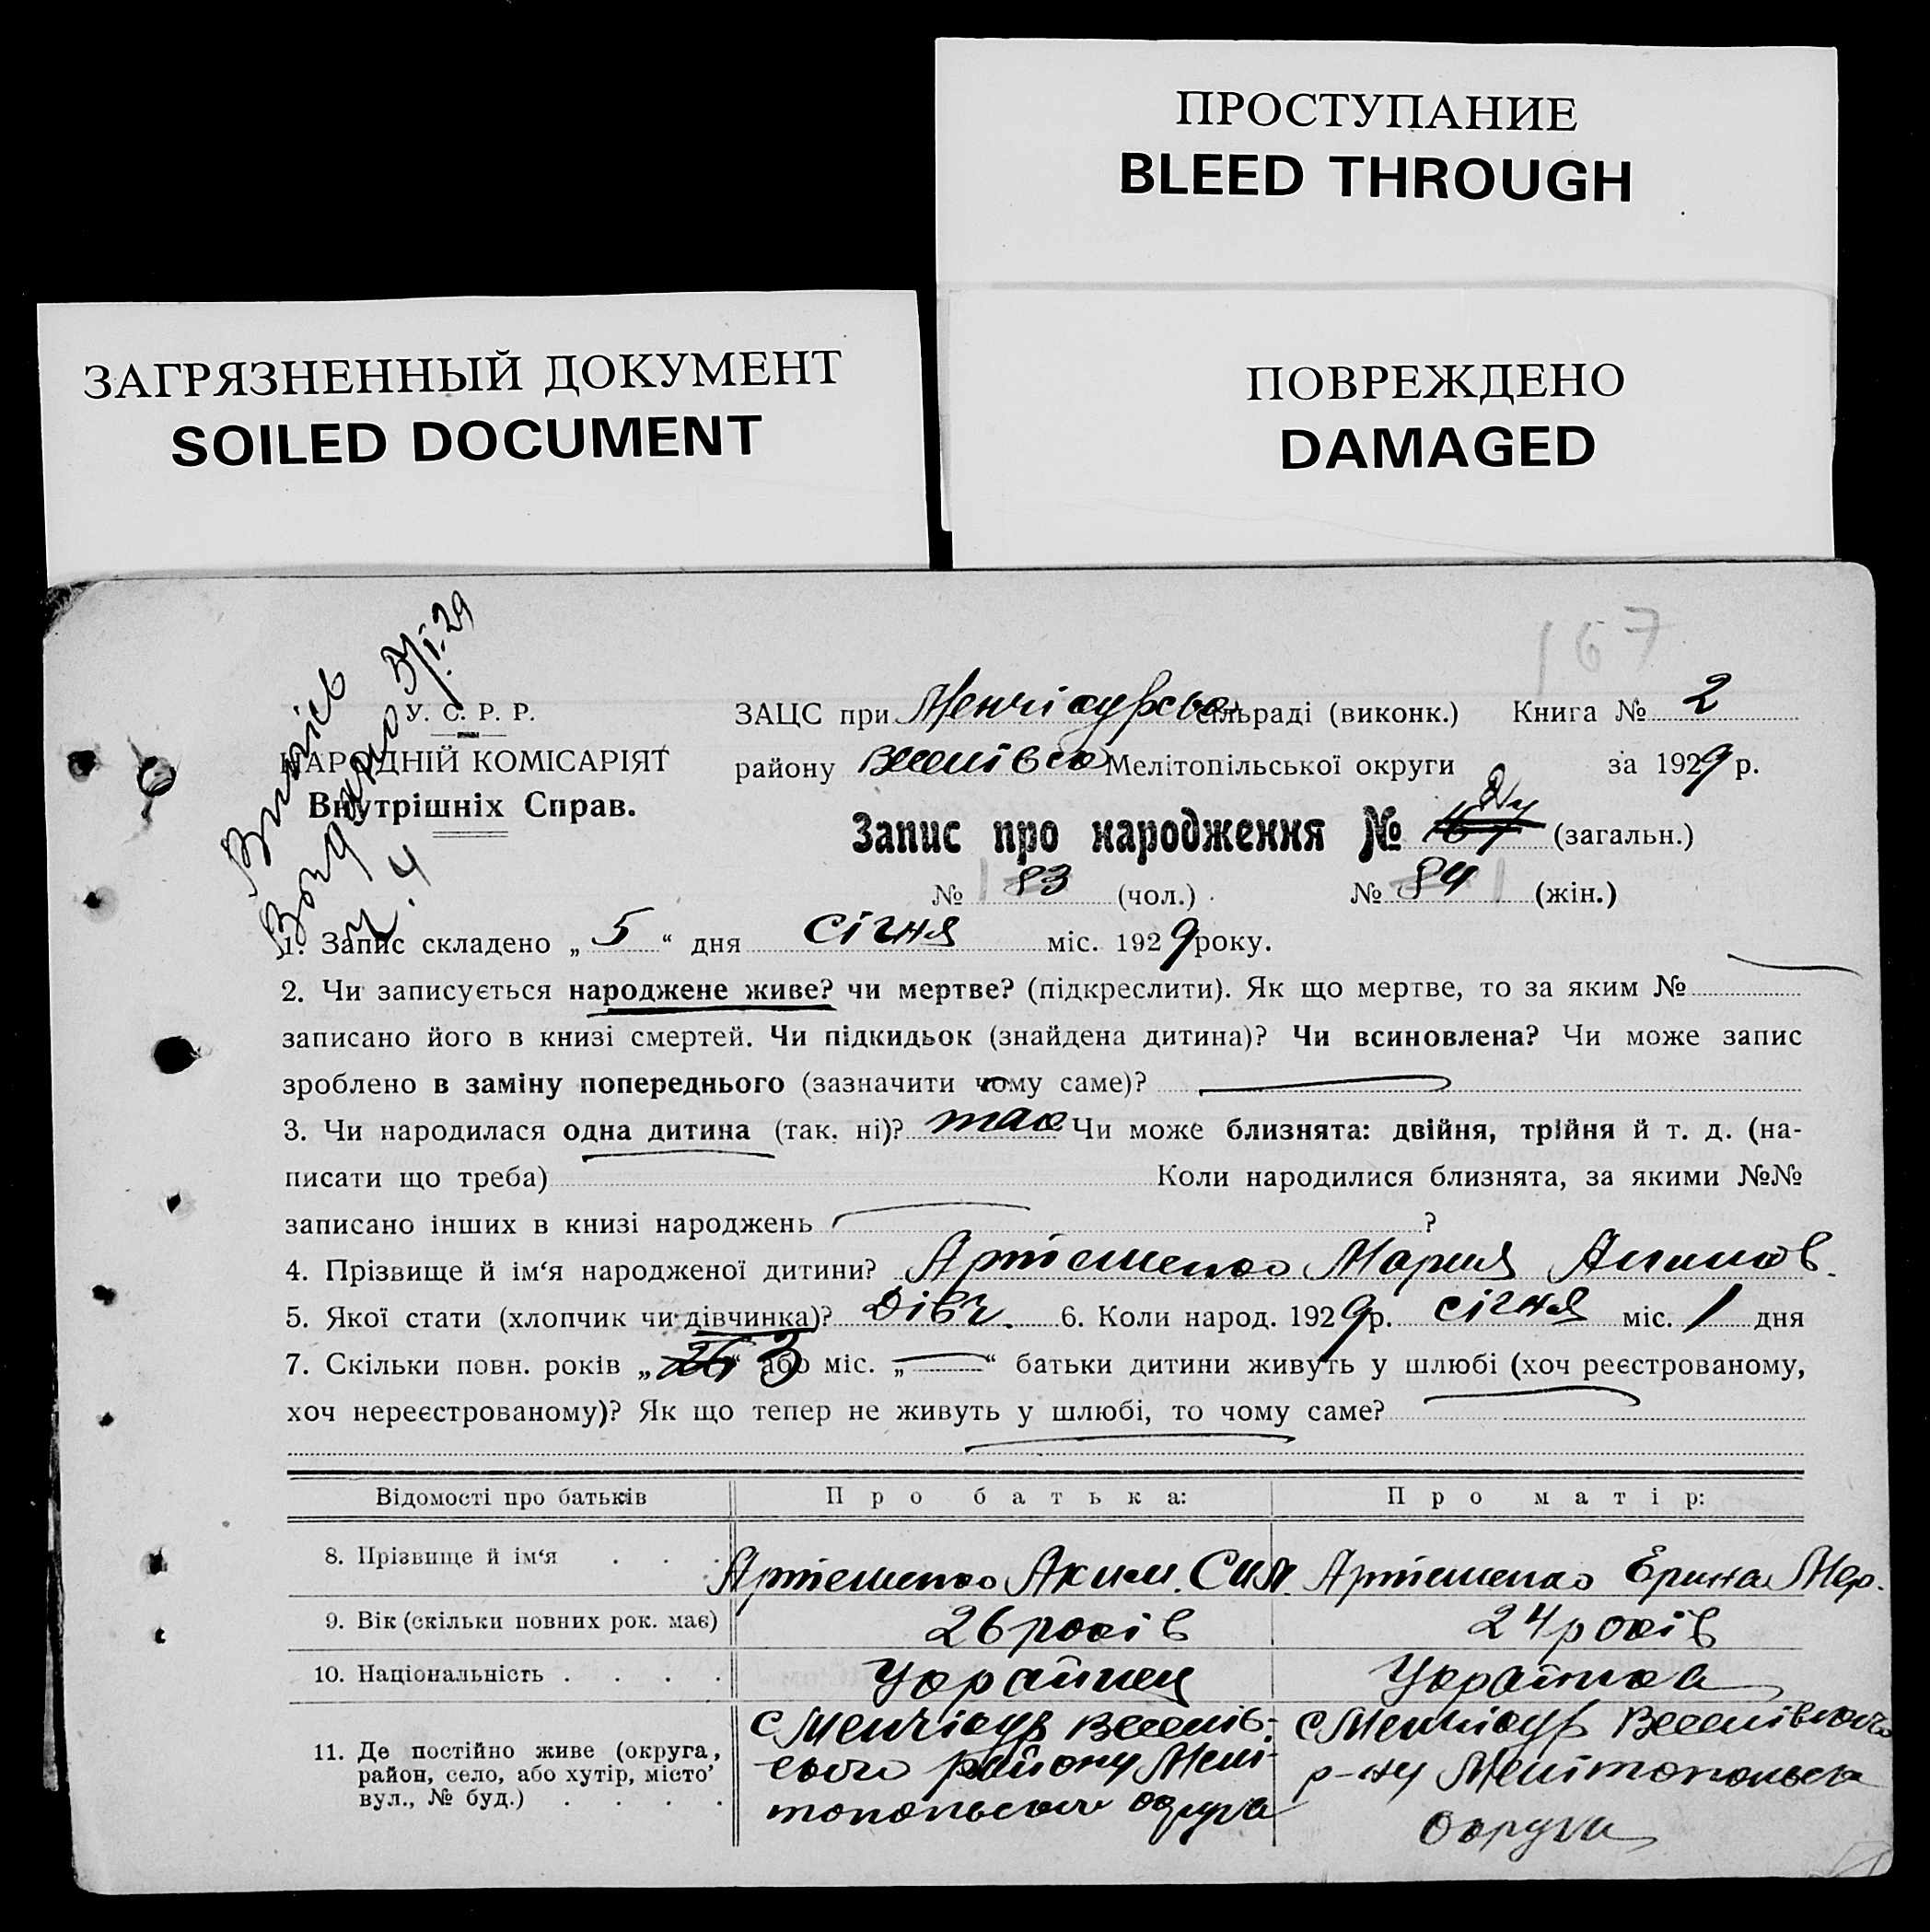 ПРОСТУПАНИЕ
BLEED THROUGH
ЗАГРЯЗНЕННЫЙ ДОКУМЕНТ
SOILED DOCUMENT
ПОВРЕЖДЕНО
DAMAGED
167
У. С. Р. Р.
НАРОДНІЙ КОМІСАРІЯТ
Внутрішніх Справ.
ЗАЦС при Менчікурськ сільраді (виконк.) Книга № 2
району Веселівсь Мелітопільської округи за 1929 р.
Запис про народження № (загальн.)
№ 83 (чол.) № 84 (жін.)
1. Запис складено „5“ дня січня міс. 1929 року.
2. Чи записується народжене живе? чи мертве? (підкреслити). Як що мертве, то за яким №
записано його в книзі смертей. Чи підкидьок (знайдена дитина)? Чи всиновлена? Чи може запис
зроблено в заміну попереднього (зазначити чому саме)?
3. Чи народилася одна дитина (так, ні)? так Чи може близнята: двійня, трійня й т. д. (на-
писати що треба) Коли народилися близнята, за якими №№
записано інших в книзі народжень ?
4. Прізвище й ім‘я народженої дитини? Артеменко Мария Акимов.
5. Якої стати (хлопчик чи дівчинка)? Дівч. 6. Коли народ. 1929 р. січня міс. 1 дня
7. Скільки повн. років „ “ 3 або міс. „ “ батьки дитини живуть у шлюбі (хоч реєстрованому,
хоч нереєстрованому)? Як що тепер не живуть у шлюбі, то чому саме?
Відомості про батьків Про батька: Про матір:
8. Прізвище й ім‘я . . . Артеменко Аким. Сим. Артеменко Ерина Мер.
9. Вік (скільки повних рок. має) 26 років 24 років
10. Національність . . . . Українец Українка
11. Де постійно живе (округа, район, село, або хутір, місто, вул., № буд.) . . . .
с Менчікур Веселів-
ського району Мелі-
топольского округа
с Менчікур Веселівского
р-ну Мелітопольск
Округа